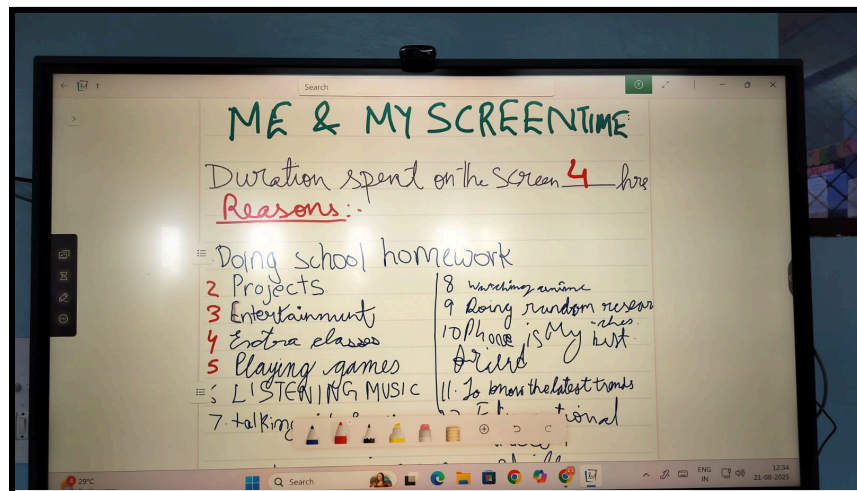 t
Search
ME & MY SCREENTIME
Duration spent on the screen 4 hrs
Reasons:-
Doing school homework
2 Projects
3 Entertainment
4 Extra classes
5 Playing games
: LISTENING MUSIC
7. talking
8 watching anime
9 Doing random resear
ches
10 Phone is My best
friend
11. To know the latest trends
tional
29°C
Search
ENG
IN
13:34
21-08-2025